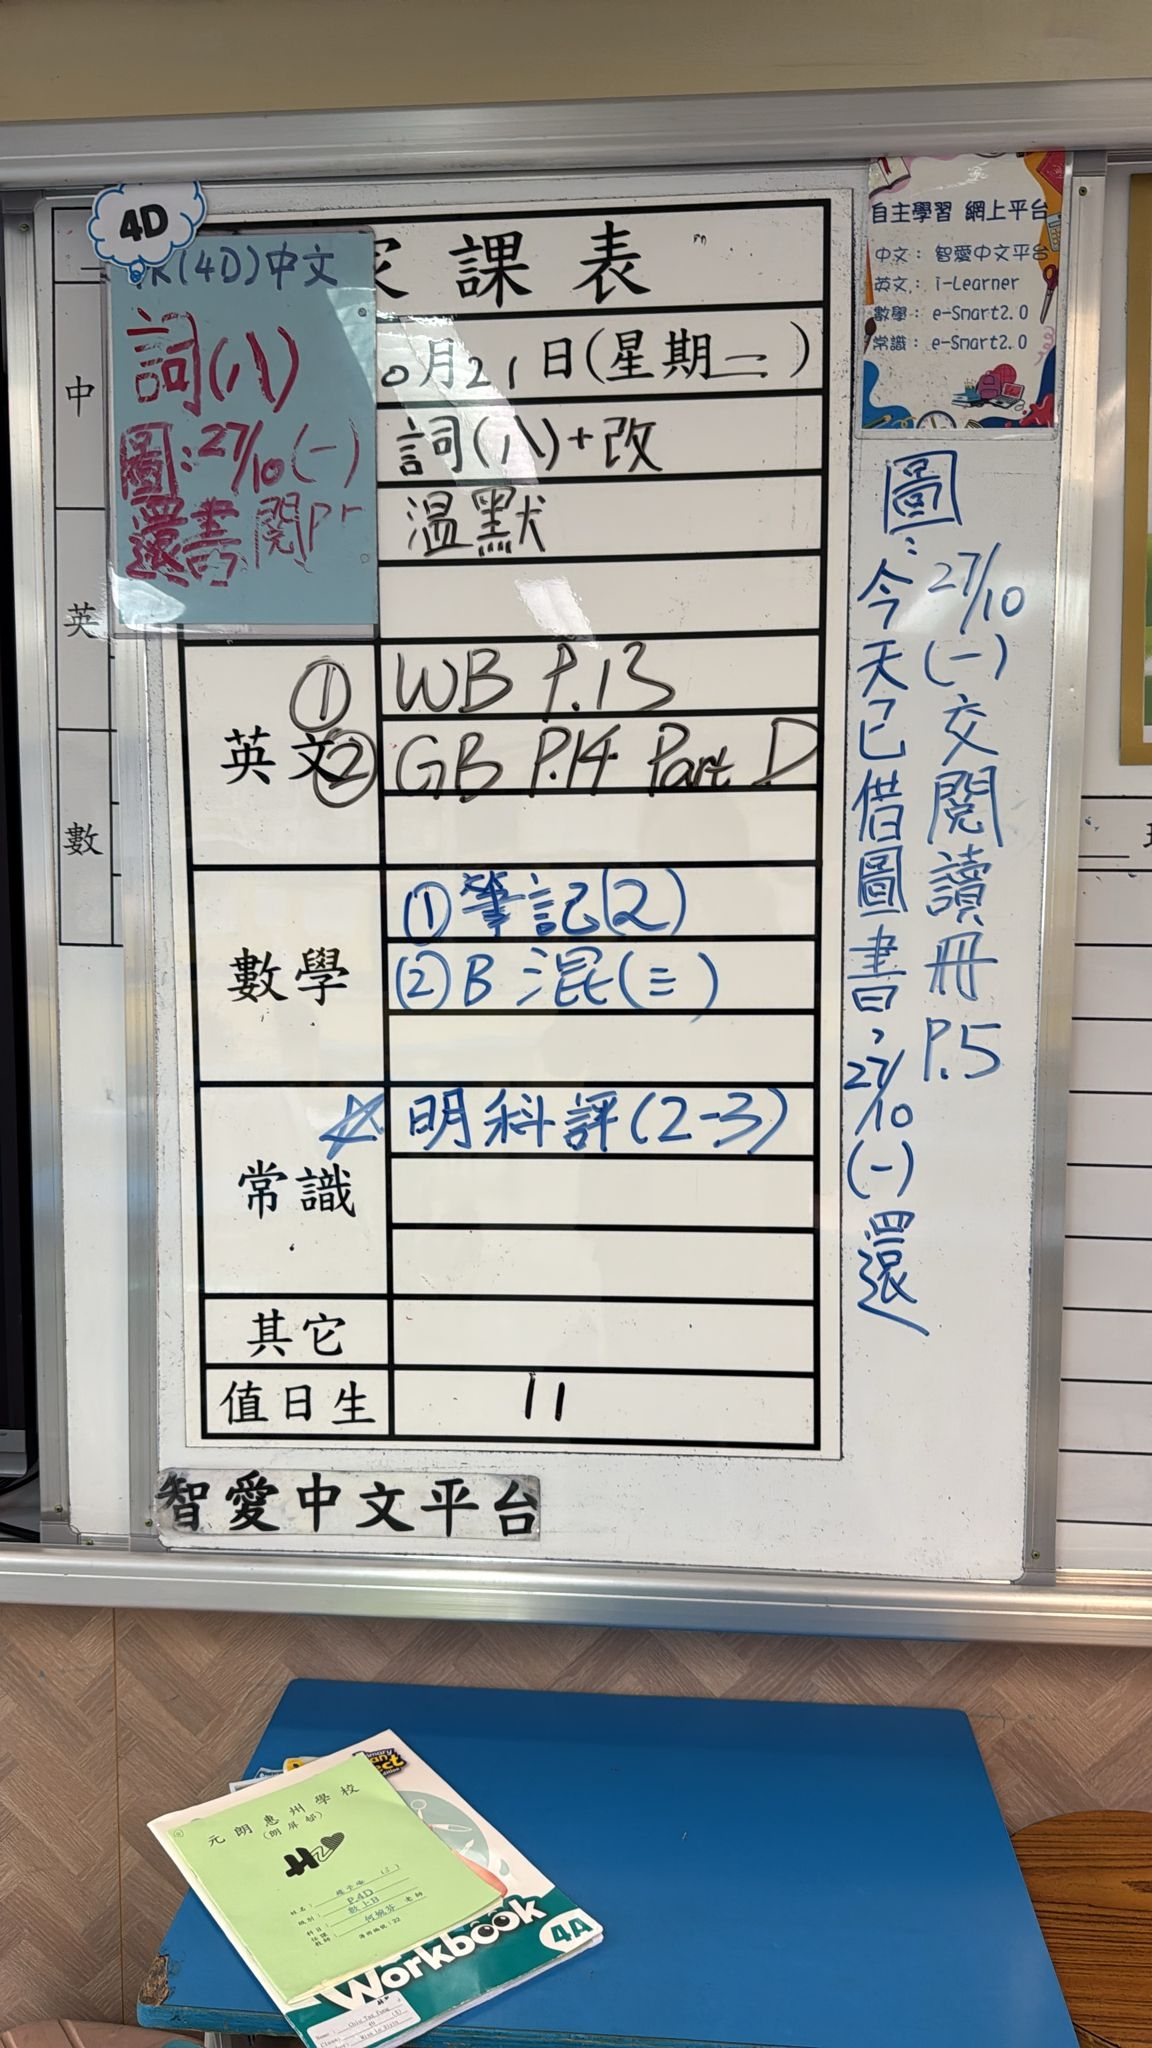 4D
(4D)中文
詞(八)
圖:27/10(一)
還書 閱P
課表
月21日(星期二)
詞(八)+改
溫默
英文
① WB P.13
② GB P.14 Part D
數學
① 筆記(2)
② B 混(三)
常識
☆ 明科評(2-3)
其它
值日生
11
智愛中文平台
中
英
數
自主學習 網上平台
中文: 智愛中文平台
英文: i-Learner
數學: e-Smart2.0
常識: e-Smart2.0
圖:
27/10(一)交閱讀冊P.5
今天已借圖書,27/10(一)還
元朗惠州學校
(朗屏邨)
姓名:
(2)
級別: P.4D
科目: 數1B
任課教師: 老師
Workbook
4A